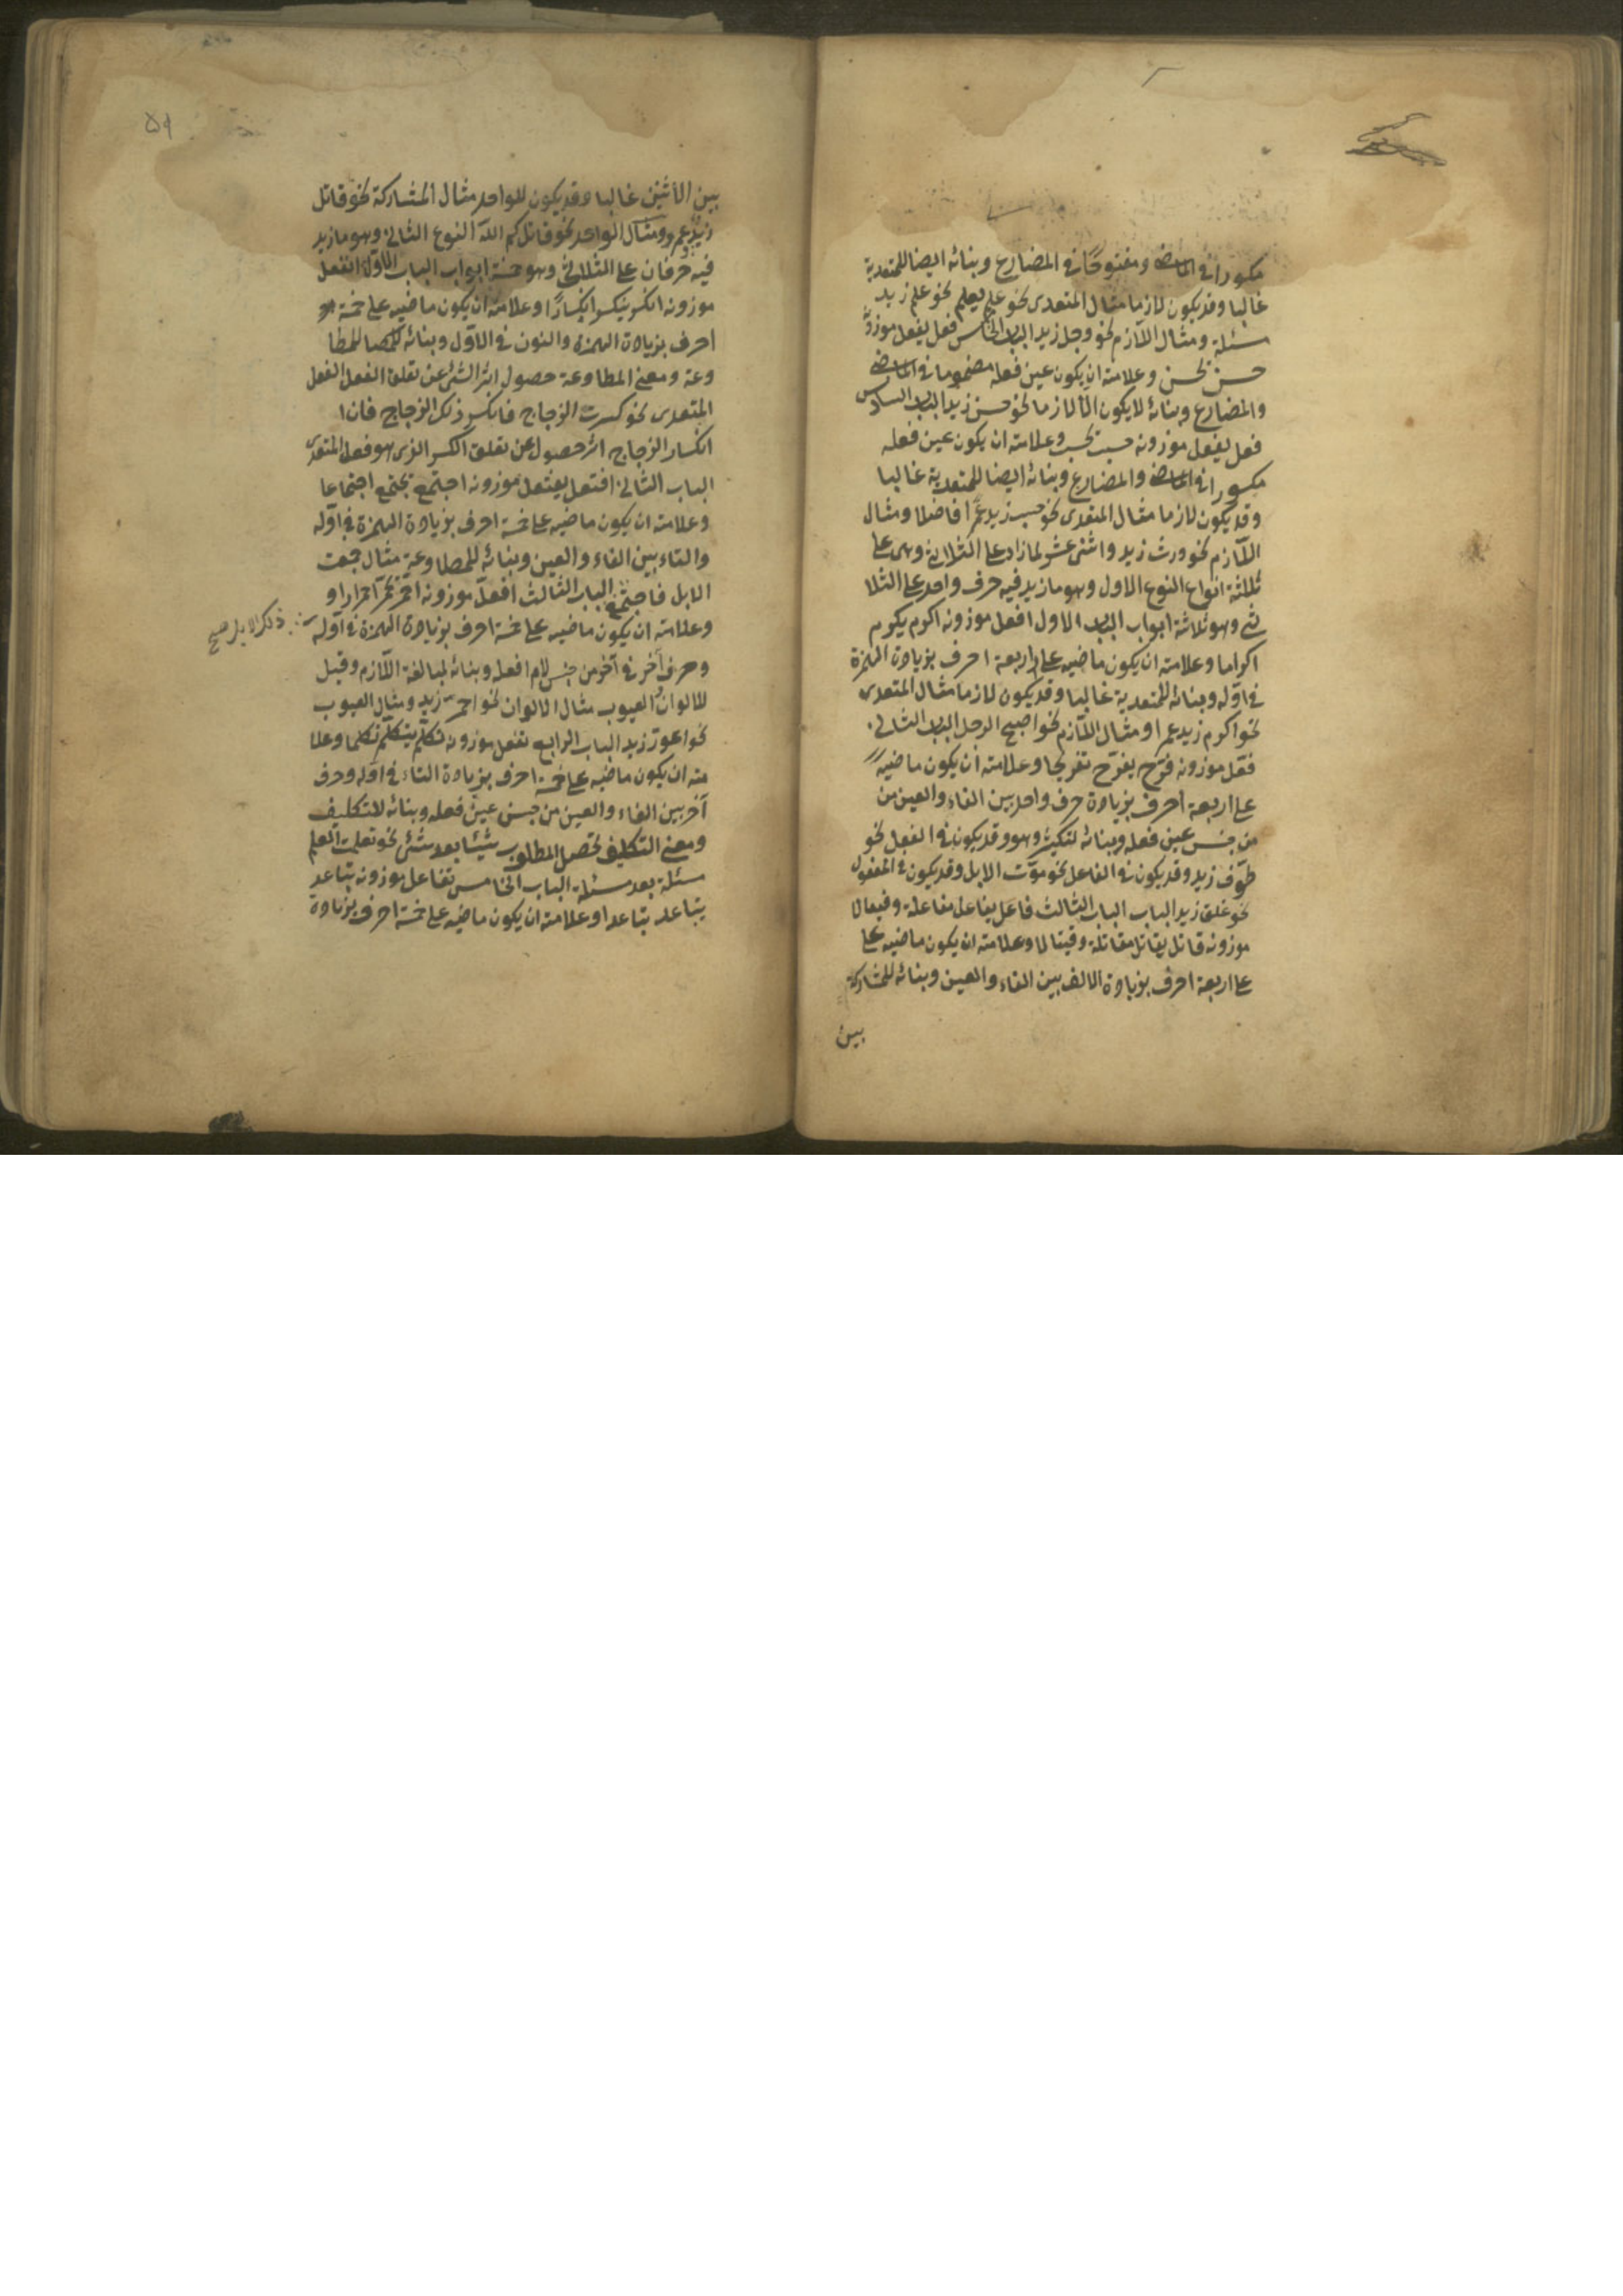 مكسورا في الماضى ومفتوحا في المضارع وبنائه ايضا للتعدية
غالبا وقد يكون لازما مثال المتعدى نحو علم يعلم نحو علم زيد
مسئلة ومثال اللازم نحو وجل زيد الباب الخامس فعل يفعل موزونه
حسن يحسن وعلامته ان يكون عين فعله مضموما في الماضى
والمضارع وبنائه لا يكون الا لازما نحو حسن زيد الباب السادس
فعل يفعل موزونه حسب يحسب وعلامته ان يكون عين فعله
مكسورا في الماضى والمضارع وبنائه ايضا للمتعدية غالبا
وقد يكون لازما مثال المتعدى نحو حسب زيد عمرا فاضلا ومثال
اللازم نحو ورث زيد واثنى عشر لما زاد على الثلاثى وهى على
ثلثة انواع النوع الاول وهو ما زيد فيه حرف واحد على الثلا
ثى وهو ثلاثة ابواب الباب الاول افعل موزونه اكرم يكرم
اكراما وعلامته ان يكون ماضيه على اربعة احرف بزيادة الهمزة
في اوله وبنائه للمتعدية غالبا وقد يكون لازما مثال المتعدى
نحو اكرم زيد عمرا ومثال اللازم نحو اصبح الرجل الباب الثانى
فعل موزونه فرح يفرح تفريحا وعلامته ان يكون ماضيه
على اربعة احرف بزيادة حرف واحد بين الفاء والعين من
من جنس عين فعله وبنائه لتكثير وهو وقد يكون في الفعل نحو
طوف زيد وقد يكون في الفاعل نحو موت الابل وقد يكون في المفعول
نحو غلق زيد الباب الباب الثالث فاعل يفاعل مفاعلة وفيعالا
موزونه قاتل يقاتل مقاتلة وقيتالا وعلامته ان يكون ماضيه على
على اربعة احرف بزيادة الالف بين الفاء والعين وبنائه للمشاركة
بين
٥٩
بين الاثنين غالبا وقد يكون للواحد مثال المشاركة نحو قاتل
زيد عمرو ومثال الواحد نحو قاتلكم الله النوع الثانى وهو ما زيد
فيه حرفان على الثلاثى وهو خمسة ابواب الباب الاول انفعل
موزونه انكسر ينكسر انكسارا وعلامته ان يكون ماضيه على خمسة
احرف بزيادة الهمزة والنون في الاول وبنائه للمطا
وعة ومعنى المطاوعة حصول اثر الشئ عن تعلق الفعل الفعل
المتعدى نحو كسرت الزجاج فانكسر ذلك الزجاج فان ا
انكسار الزجاج اثر حصول عن تعلق الكسر الذى هو فعل المتعدى
الباب الثانى افتعل يفتعل موزونه اجتمع يجتمع اجتماعا
وعلامته ان يكون ماضيه على خمسة احرف بزيادة الهمزة في اوله
والتاء بين الفاء والعين وبنائه للمطاوعة مثال جمعت
الابل فاجتمع الباب الثالث افعل موزونه احمر يحمر احمرارا و
وعلامته ان يكون ماضيه على خمسة احرف بزيادة الهمزة في اوله
ذلك الابل صح
وحرف آخر في آخر من جنس لام فعله وبنائه لمبالغة اللازم وقيل
للالوان والعيوب مثال الالوان نحو احمر زيد ومثال العيوب
نحو اعور زيد الباب الرابع تفعل موزونه تكلم يتكلم تكلما وعلا
مته ان يكون ماضيه على خمسة احرف بزيادة التاء في اوله وحرف
آخر بين الفاء والعين من جنس عين فعله وبنائه للتكليف
ومعنى التكليف تحصيل المطلوب شيئا بعد شئ نحو تعلمت العلم
مسئلة بعد مسئلة الباب الخامس تفاعل موزونه تباعد
يتباعد تباعدا وعلامته ان يكون ماضيه على خمسة احرف بزيادة